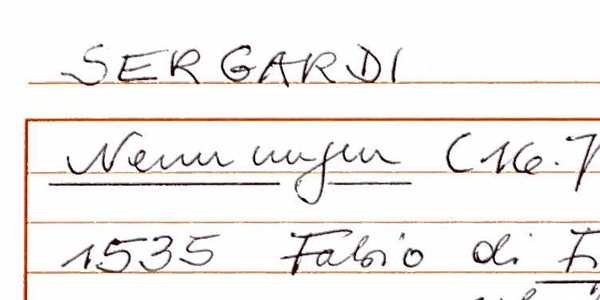 SERGARDI
Nennungen (16.
1535 Fabio di